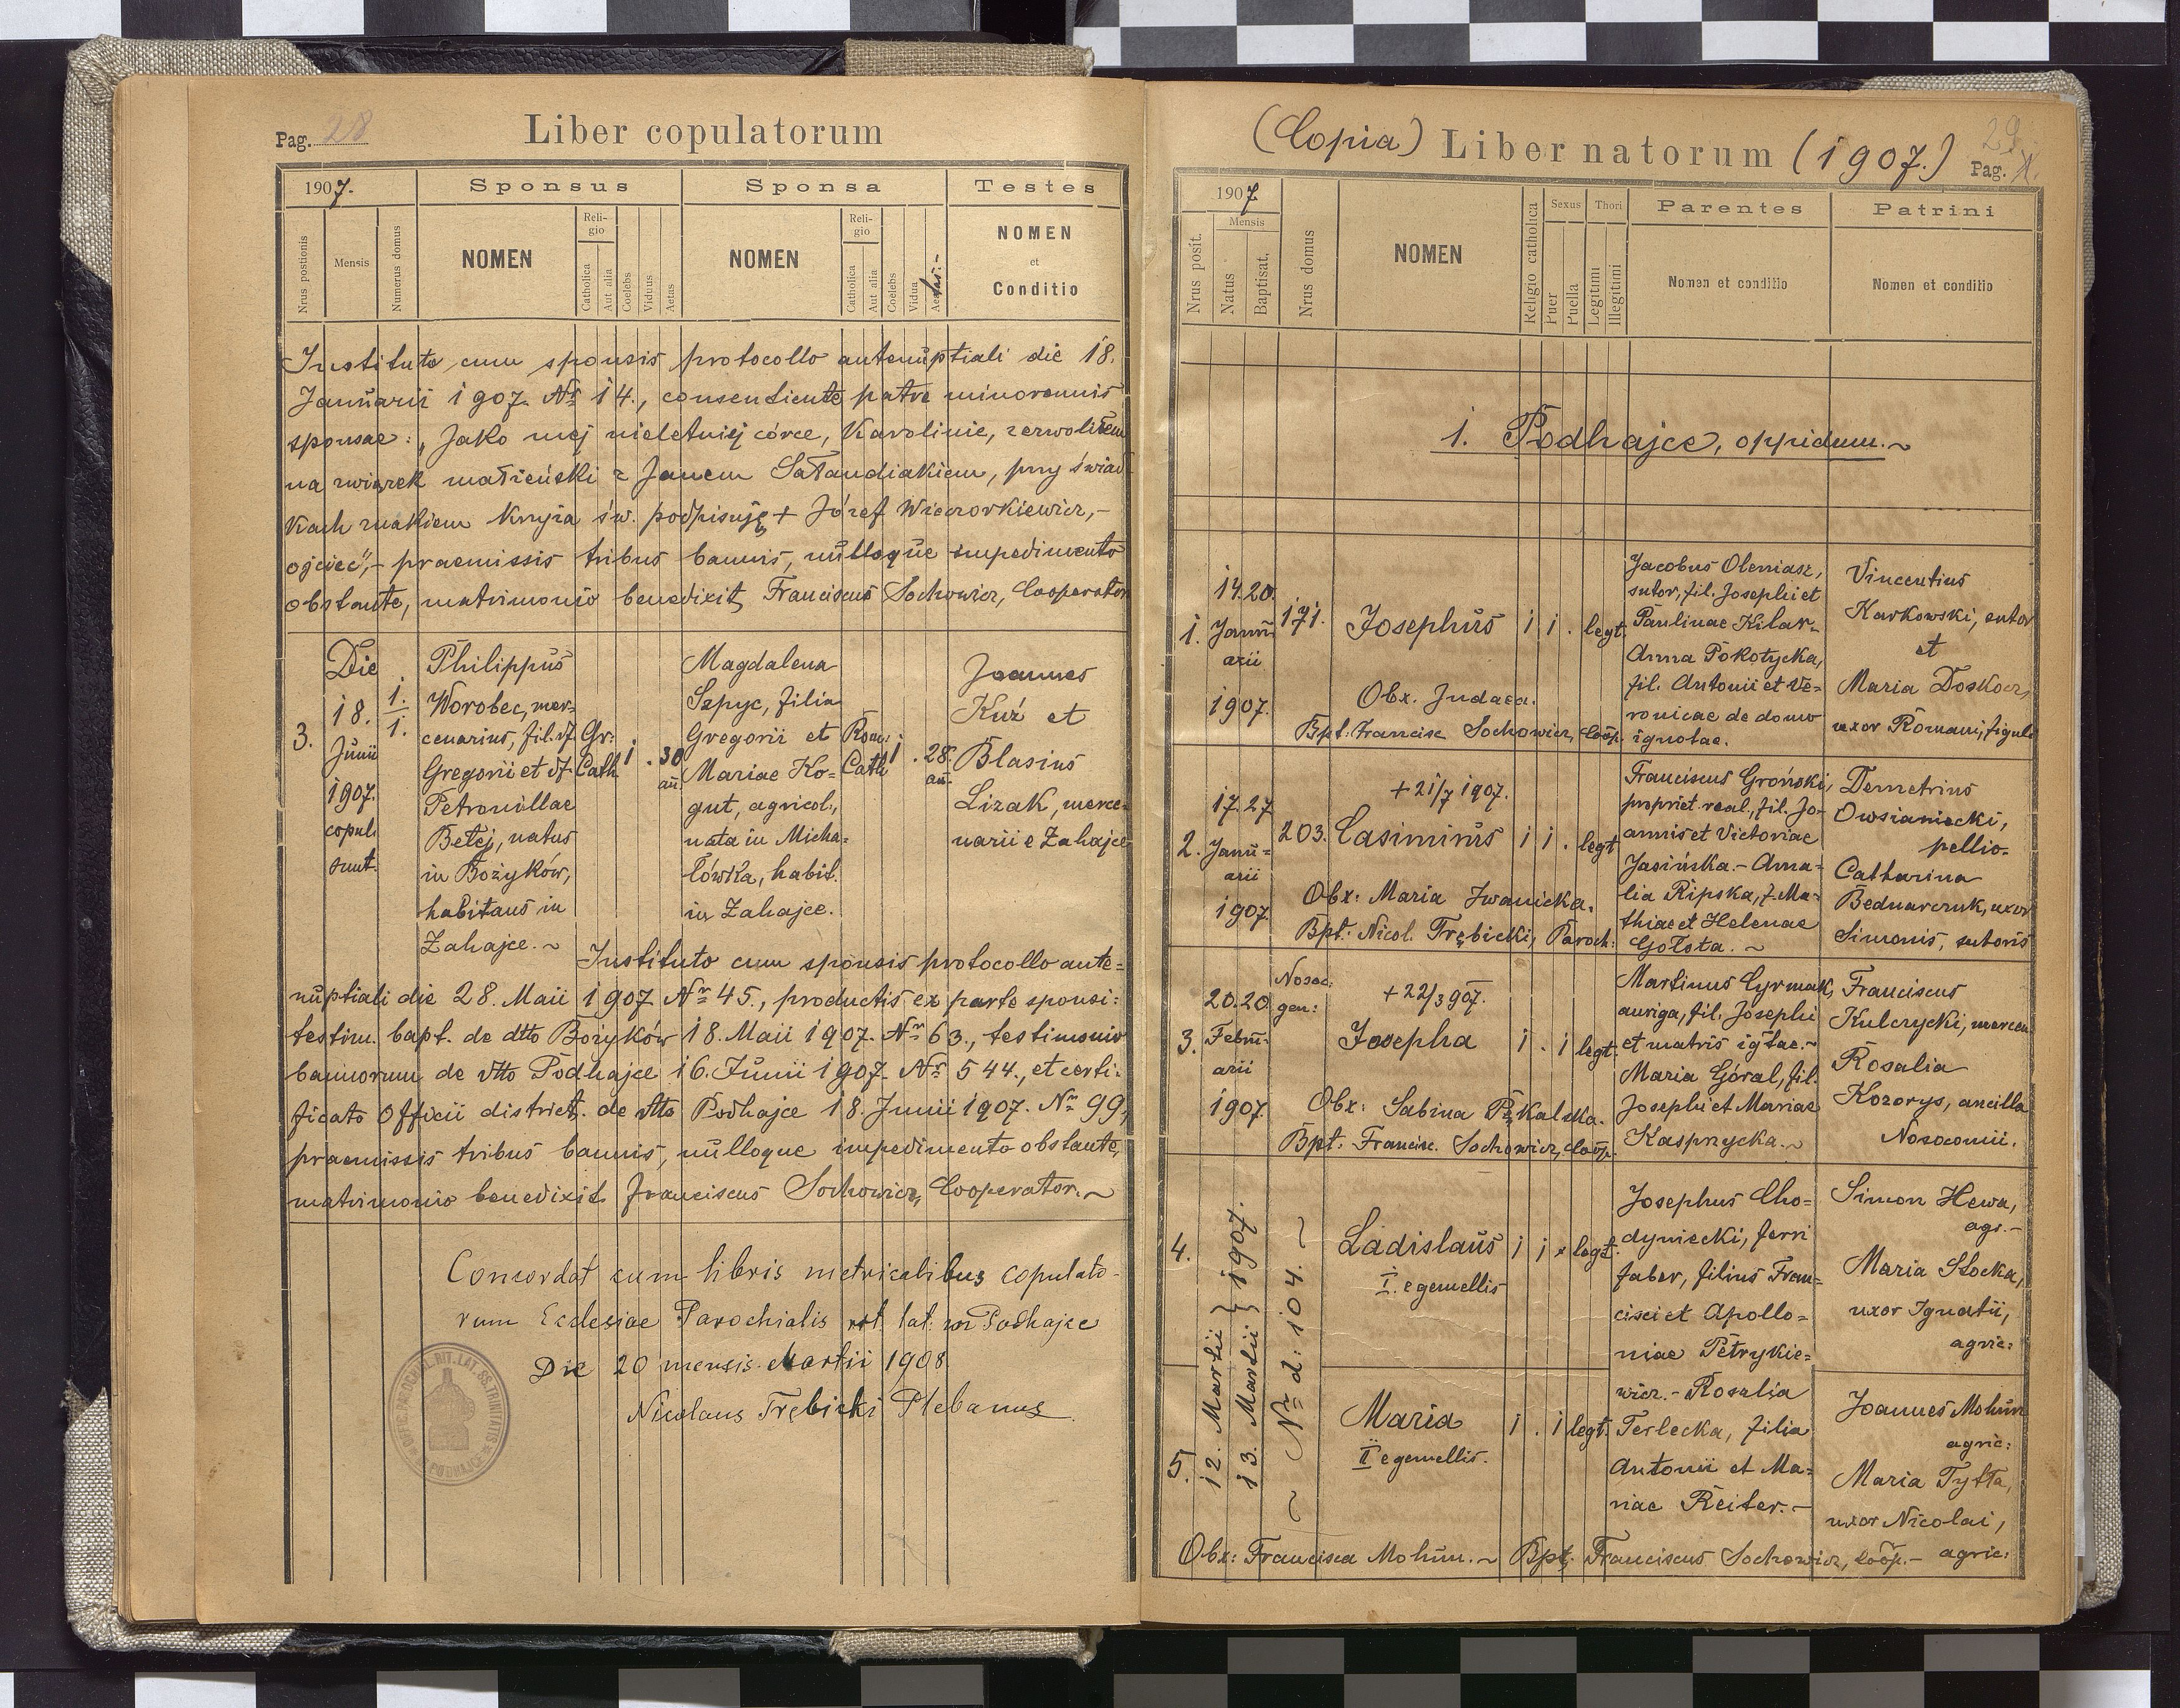 Pag. 28
Liber copulatorum
1907.
Sponsus
Sponsa
Testes
Nrus postionis
Mensis
Numerus domus
NOMEN
Religio
Catholica
Aut alia
Coelebs
Viduus
Aetas
NOMEN
Religio
Catholica
Aut alia
Coelebs
Vidua
NOMEN
et
Conditio
Instituto cum sponsis protocollo antenuptiali die 18.
Januarii 1907. Nr 14., consentiente patre minorennis
sponsae: „Jako mej nieletniej córce, Karolinie, zezwoliłem
na związek małżeński z Janem Sałandiakiem, przy świad
kach znakiem krzyża św. podpisuję + Józef Wieczorkiewicz,-
ojciec",- praemissis tribus bannis, nulloque impedimento
obstante, matrimonio benedixit Franciscus Sochowicz, Cooperator
3.
Die
18.
Junii
1907.
copul.
sunt.
1.
1.
Philippus
Worobec, mer=
cenarius, fil.
Gregorii et
Petronillae
Betej, natus
in Bożyków,
habitans in
Zahajce.~
Gr:
Cath
1 . 30
an.
Magdalena
Szpyc, filia
Gregorii et
Mariae Ko=
gut, agricol.,
nata in Micha=
łówka, habit.
in Zahajce.
Rom:
Cath
1 . 28.
an.
Joannes
Kuź et
Blasius
Lizak, merce=
narii e Zahajce
Instituto cum sponsis protocollo ante=
nuptiali die 28. Maii 1907. Nr 45., productis ex parte sponsi:
testim. bapt. de dtto Bożyków 18. Maii 1907. Nr 63., testimonio
bannorum de dtto Podhajce 16. Junii 1907. Nr 544., et certi:
ficato Officii district. de dtto Podhajce 18. Junii 1907. Nr 99,
praemissis tribus bannis, nulloque impedimento obstante,
matrimonio benedixit Franciscus Sochowicz, Cooperator.~
Concordat cum libris metricalibus copulato-
rum Ecclesiae Parochialis rit. lat. in Podhajce
Die 20 mensis Martii 1908
Nicolaus Trębicki Plebanus
(Copia) Liber natorum (1907.)
29
Pag.
1907
Nrus posit.
Mensis
Natus
Baptisat.
Nrus domus
NOMEN
Religio catholica
Sexus
Puer
Puella
Thori
Legitimi
Illegitimi
Parentes
Nomen et conditio
Patrini
Nomen et conditio
1. Podhajce, oppidum.~
1.
14.20.
Janu=
arii
1907.
171.
Josephus
1 1 . legt.
Obx. Judaea.
Bpt: Francisc Sochowicz, Coop.
Jacobus Oleniasz,
sutor, fil. Josephi et
Paulinae Kilar.-
Anna Pokotycka,
fil. Antonii et Ve=
ronicae de domo
ignotae.
Vincentius
Karkowski, sutor
et
Maria Doskocz,
uxor Romani, figuli
2.
17.27
Janu=
arii
1907.
203.
+21/7 1907.
Casimirus
1 1 . legt
Obx: Maria Iwanicka.
Bpt: Nicol. Trębicki, Paroch:
Franciscus Groński,
propriet. real., fil. Jo=
annis et Victoriae
Jasińska.- Ama=
lia Ripska, f. Ma=
thiae et Helenae
Gołota.~
Demetrius
Owsianiecki,
pellio.
Catharina
Bednarczuk, uxor
Simonis, sutoris
3.
20.20.
Febru=
arii
1907.
Nosoc:
gen:
+22/3 907.
Josepha
1 . 1 legt.
Obx: Sabina Pękalska.
Bpt: Francisc. Sochowicz, Coop.
Martinus Cyrmak,
auriga, fil. Josephi
et matris igtae.~
Maria Góral, fil.
Josephi et Mariae
Kasprzycka.~
Franciscus
Kulczycki, mercen
Rosalia
Kozorys, ancilla
Nosocomii.
4.
12. Martii } 1907.
13. Martii }
~ Nr d: 104. ~
Ladislaus
I. e gemellis
1 1 x legt.
Josephus Cho=
dyniecki, ferri
faber, filius Fran=
cisci et Apollo=
niae Petrykie=
wicz.- Rosalia
Terlecka, filia
Antonii et Ma=
riae Reiter.-
Simon Hewa,
agr.-
Maria Słocka,
uxor Ignatii,
agric:
5.
Maria
II e gemellis.
1 . 1 legt.
Joannes Mohun
agric:
Maria Tytta,
uxor Nicolai,
agric:
Obx: Francisca Mohun.~ Bpt: Franciscus Sochowicz, coop.-